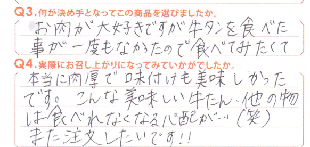 Q3.何が決め手となってこの商品を選びましたか。
お肉が大好きですが牛タンを食べた
事が一度もなかたので食べてみたくて
Q4.実際にお召し上がりになってみていかがでしたか。
本当に肉厚で味付けも美味しかった
です。こんな美味しい牛たん、他の物
は食べれなくなる心配が…(笑)
また注文したいです!!